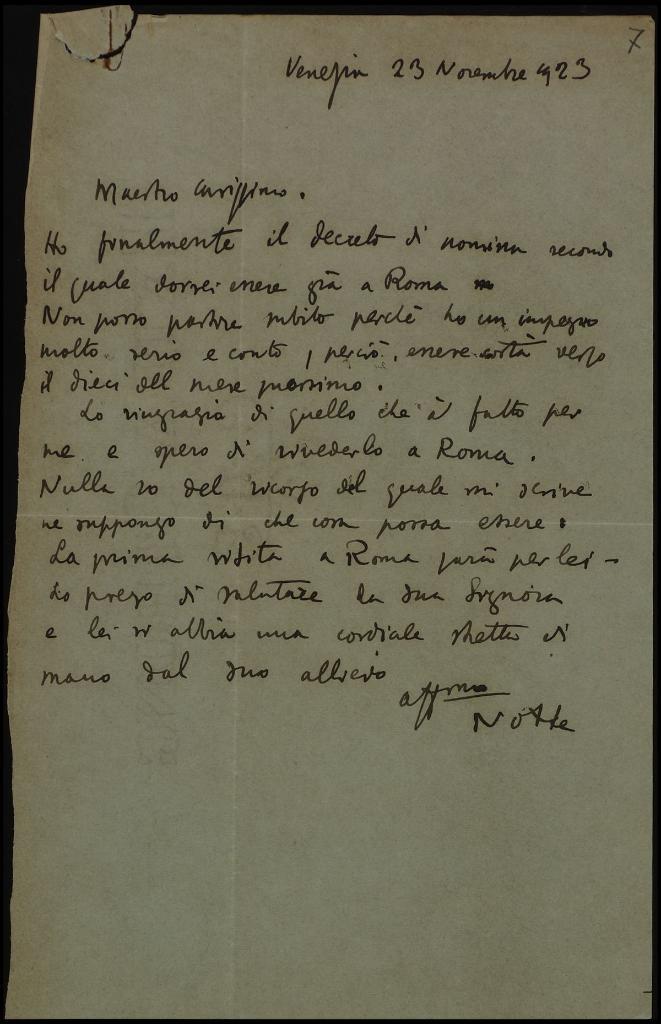 7
Venezia 23 Novembre 923
Maestro carissimo.
Ho finalmente il decreto di nomina secondo
il quale dovrei essere già a Roma
Non posso partire subito perchè ho un impegno
molto serio e conto, perciò, essere costà verso
il dieci del mese prossimo.
Lo ringrazio di quello che à fatto per
me e spero di rivederlo a Roma.
Nulla so del ricorso del quale mi scrive
ne suppongo di che cosa possa essere.
La prima visita a Roma sarà per lei -
Lo prego di salutare la sua Signora
e lei si abbia una cordiale stretta di
mano dal suo allievo
affmo
Notte